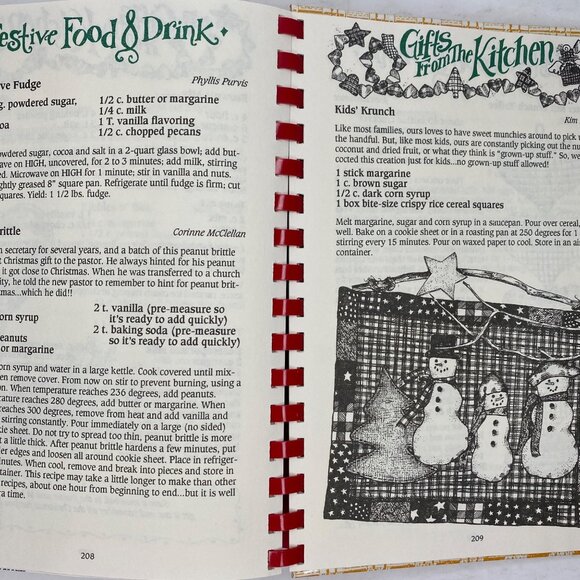 estive Food & Drink
ve Fudge
Phyllis Purvis
g. powdered sugar,
oa
1/2 c. butter or margarine
1/4 c. milk
1 T. vanilla flavoring
1/2 c. chopped pecans
owdered sugar, cocoa and salt in a 2-quart glass bowl; add but-
ave on HIGH, uncovered, for 2 to 3 minutes; add milk, stirring
d. Microwave on HIGH for 1 minute; stir in vanilla and nuts.
ghtly greased 8" square pan. Refrigerate until fudge is firm; cut
squares. Yield: 1 1/2 lbs. fudge.
rittle
Corinne McClellan
n secretary for several years, and a batch of this peanut brittle
t Christmas gift to the pastor. He always hinted for his peanut
it got close to Christmas. When he was transferred to a church
ity, he told the new pastor to remember to hint for peanut brit-
tmas...which he did!!
corn syrup
eanuts
or margarine
2 t. vanilla (pre-measure so
it's ready to add quickly)
2 t. baking soda (pre-measure
so it's ready to add quickly)
orn syrup and water in a large kettle. Cook covered until mix-
en remove cover. From now on stir to prevent burning, using a
n. When temperature reaches 236 degrees, add peanuts.
erature reaches 280 degrees, add butter or margarine. When
reaches 300 degrees, remove from heat and add vanilla and
stirring constantly. Pour immediately on a large (no sided)
okie sheet. Do not try to spread too thin, peanut brittle is more
t a little thick. After peanut brittle hardens a few minutes, put
er edges and loosen all around cookie sheet. Place in refriger-
inutes. When cool, remove and break into pieces and store in
tainer. This recipe may take a little longer to make than other
recipes, about one hour from beginning to end...but it is well
a time.
208
Gifts
From The Kitchen
Kids' Krunch
Kim
Like most families, ours loves to have sweet munchies around to pick u
the handful. But, like most kids, ours are constantly picking out the nu
coconut and dried fruit, or what they think is "grown-up stuff." So, we
cocted this creation just for kids...no grown-up stuff allowed!
1 stick margarine
1 c. brown sugar
1/2 c. dark corn syrup
1 box bite-size crispy rice cereal squares
Melt margarine, sugar and corn syrup in a saucepan. Pour over cereal,
well. Bake on a cookie sheet or in a roasting pan at 250 degrees for 1
stirring every 15 minutes. Pour on waxed paper to cool. Store in an air
container.
209